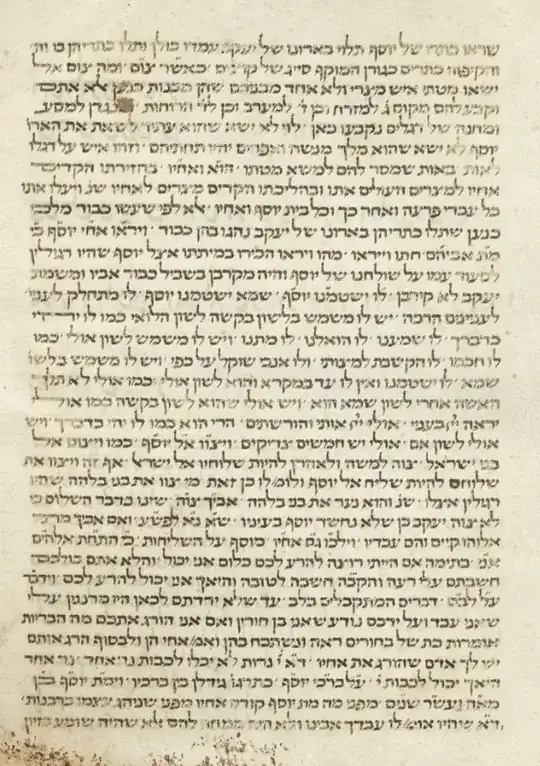 שראו כתרו של יוסף תלוי בארונו של יעקב עמדו כולן ותלו כתריהן בו וה׳
והקיפוהו כתרים כגורן המוקף סייג של קוצים ׳ כאשר צום ׳ ומה צום אל
ישאו מטתי איש מצרי ולא אחד מבניכם שהן מבנות כנען אלא אתם
וקבע להם מקום ג׳ למזרח וכן ג׳ למערב וכן לד׳ הרוחות ׳ וכנגדן למסע
ומחנה של דגלים נקבעו כאן ׳ לוי לא ישא שהוא עתיד לשאת את הארו
יוסף לא ישא שהוא מלך מנשה ואפרים יהיו תחתיהם ׳ וזהו איש על דגלו
לאות ׳ באות שמסר להם למשא מטתו ׳ הוא ואחיו ׳ בחזירתו הקדים
אחיו למצרים העולים אתו ובהליכתו הקדים מצרים לאחיו שנ׳ ויעלו אתו
כל עבדי פרעה ואחר כך וכל בית יוסף ואחיו ׳ אלא לפי שעשו כבוד מלכי
כנען שתלו כתריהן בארונו של יעקב נהגו בהן כבוד ׳ ויראו אחי יוסף כי
מת אביהם ׳ חתו וייראו ׳ מהו ויראו הכירו במיתתו אצל יוסף שהיו רגילין
לסעוד עמו על שולחנו של יוסף והיה מקרבן בשביל כבוד אביו ומשמת
יעקב לא קירבן ׳ לו ישטמנו יוסף ׳ שמא ישטמנו יוסף ׳ לו מתחלק לעניי׳
לעניינים הרבה ׳ יש לו משמש בלשון בקשה לשון הלואי כמו לו יהי
כדבריך ׳ לו שמיענו ׳ לו הואלנו ׳ לו מתנו ׳ ויש לו משמש לשון אולי ׳ כמו
לו חכמו ׳ לו הקשבת למצותי ׳ ולו אנכי שוקל על כפי ׳ ויש לו משמש בלשו
שמא ׳ לו ישטמנו ואין לו עד במקרא והוא לשון אולי כמו אולי לא תלך
האשה אחרי לשון שמא הוא ׳ ויש אולי שהוא לשון בקשה כמו אולי
יראה יי׳ בעניי ׳ אולי יי׳ אותי והורשתים ׳ הרי הוא כמו לו יהי כדברך ׳ ויש
אולי לשון אם ׳ אולי יש חמשים צדיקים ׳ ויצוו אל יוסף ׳ כמו ויצום אל
בני ישראל ׳ צוה למשה ולאהרן להיות שלוחיו אל ישראל ׳ אף זה ויצוו את
שלוחם להיות שליח אל יוסף ולומ׳ לו כן זאת ׳ מי צוו את בני בלהה שהיו
רגילין אצלו ׳ שנ׳ והוא נער את בני בלהה ׳ אביך צוה ׳ שינו בדבר השלום כי
לא צוה יעקב כן שלא נחשד יוסף בעיניו ׳ שא נא לפשע ׳ ואם אביך מת
אלוהיו קיים והם עבדיו ׳ וילכו גם אחיו ׳ מוסף על השליחות ׳ כי התחת אלהים
אני ׳ בתימה אם הייתי רוצה להרע לכם כלום אני יכול ׳ והלא אתם כולכם
חשבתם עלי רעה והק׳ב׳ה חשבה לטובה והיאך אני יכול להרע לכם ׳ וידבר
על לבם ׳ דברים המתקבלים בלב ׳ עד שלא ירדתם לכאן היו מרננין עלי
שאני עבד ועל ידכם נודע שאני בן חורין ואם אני הורג אתכם מה הבריות
אומרות כת של בחורים ראה ונשתבח בהן ואמ׳ אחי הן ולבסוף הרג אותם
יש לך אדם שהורג את אחיו ׳ ד׳א׳ י׳ נרות לא יכלו לכבות נר אחד ׳ נר אחד
היאך יכול לכבות י׳ ׳ על ברכי יוסף ׳ כתרגו׳ גידלן בין ברכיו ׳ וימת יוסף בן
מאה ועשר שנים ׳ מפני מה מת יוסף קודם אחיו מפני שנהג עצמו ברבנות ׳
ד׳א׳ שהיו אומ׳ לו עבדך אבינו ולא היה ממחה להם אלא שהיה שומע בזיון